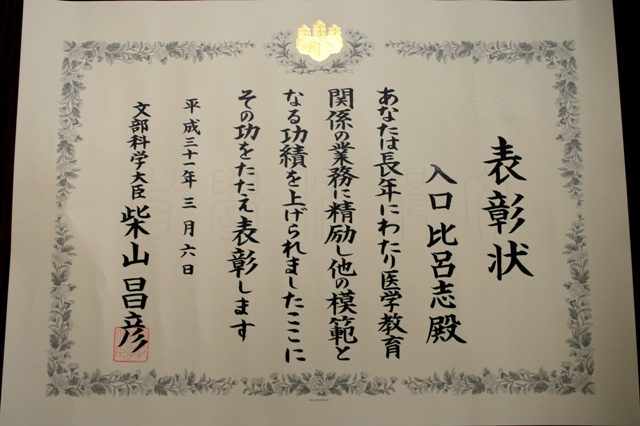 表彰状
入口比呂志殿
あなたは長年にわたり医学教育
関係の業務に精励し他の模範と
なる功績を上げられましたここに
その功をたたえ表彰します
平成三十一年三月六日
文部科学大臣 柴山昌彦